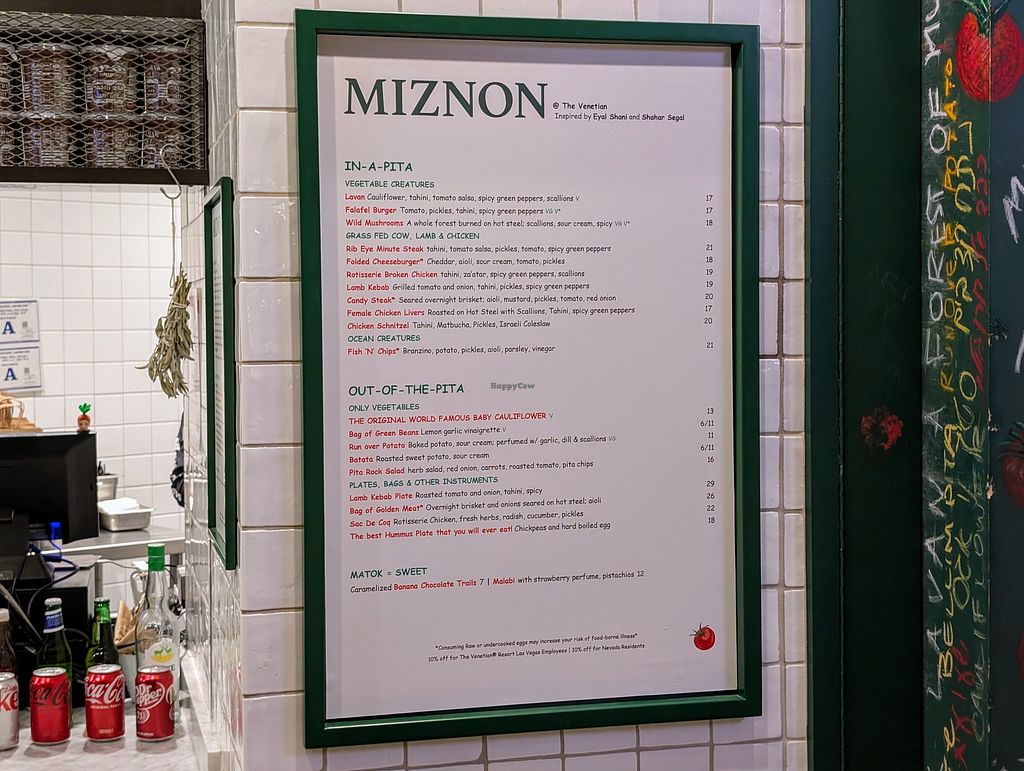 MIZNON @ The Venetian
Inspired by Eyal Shani and Shahar Segal
IN-A-PITA
VEGETABLE CREATURES
Lavan Cauliflower, tahini, tomato salsa, spicy green peppers, scallions V 17
Falafel Burger Tomato, pickles, tahini, spicy green peppers VG V* 17
Wild Mushrooms A whole forest burned on hot steel; scallions, sour cream, spicy VG V* 18
GRASS FED COW, LAMB & CHICKEN
Rib Eye Minute Steak tahini, tomato salsa, pickles, tomato, spicy green peppers 21
Folded Cheeseburger* Cheddar, aioli, sour cream, tomato, pickles 18
Rotisserie Broken Chicken tahini, za'atar, spicy green peppers, scallions 19
Lamb Kebab Grilled tomato and onion, tahini, pickles, spicy green peppers 19
Candy Steak* Seared overnight brisket; aioli, mustard, pickles, tomato, red onion 20
Female Chicken Livers Roasted on Hot Steel with Scallions, Tahini, spicy green peppers 17
Chicken Schnitzel Tahini, Matbucha, Pickles, Israeli Coleslaw 20
OCEAN CREATURES
Fish 'N' Chips* Branzino, potato, pickles, aioli, parsley, vinegar 21
OUT-OF-THE-PITA
HappyCow
ONLY VEGETABLES
THE ORIGINAL WORLD FAMOUS BABY CAULIFLOWER V 13
Bag of Green Beans Lemon garlic vinaigrette V 6/11
Run over Potato Baked potato, sour cream; perfumed w/ garlic, dill & scallions VG 11
Batata Roasted sweet potato, sour cream 6/11
Pita Rock Salad herb salad, red onion, carrots, roasted tomato, pita chips 16
PLATES, BAGS & OTHER INSTRUMENTS
Lamb Kebab Plate Roasted tomato and onion, tahini, spicy 29
Bag of Golden Meat* Overnight brisket and onions seared on hot steel; aioli 26
Sac De Coq Rotisserie Chicken, fresh herbs, radish, cucumber, pickles 22
The best Hummus Plate that you will ever eat! Chickpeas and hard boiled egg 18
MATOK = SWEET
Caramelized Banana Chocolate Trails 7 | Malabi with strawberry perfume, pistachios 12
*Consuming Raw or undercooked eggs may increase your risk of food-borne illness*
10% off for The Venetian® Resort Las Vegas Employees | 10% off for Nevada Residents
A
A
Coca-Cola
Coca-Cola
Dr Pepper
23
A FOREST OF
RUNOVER POTATO